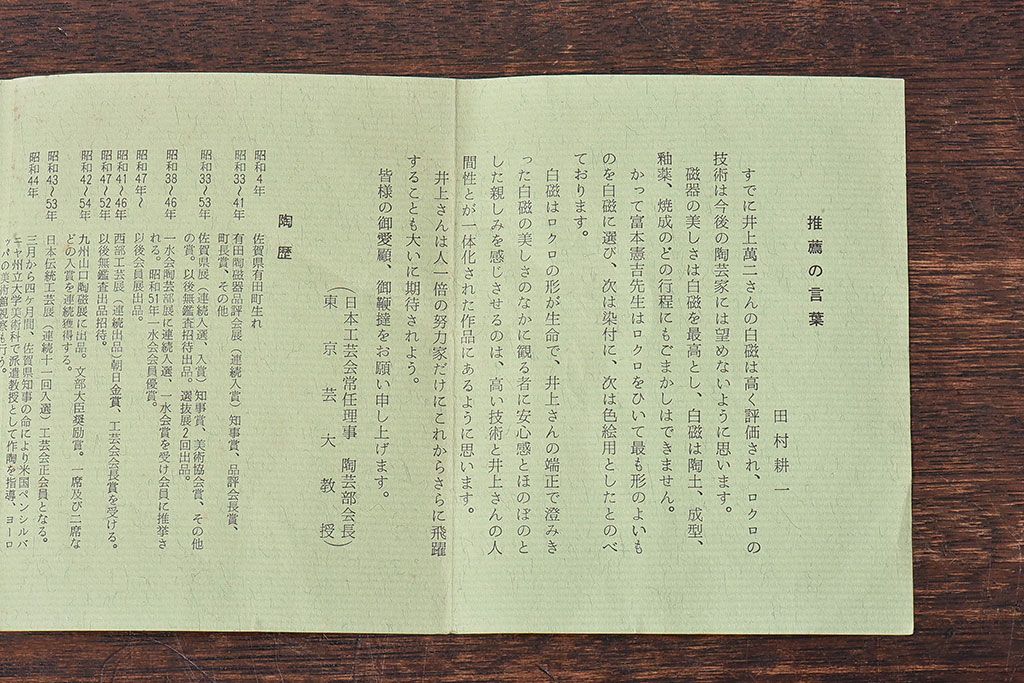 推薦の言葉
田村耕一
すでに井上萬二さんの白磁は高く評価され、ロクロの
技術は今後の陶芸家には望めないように思います。
磁器の美しさは白磁を最高とし、白磁は陶土、成型、
釉薬、焼成のどの行程にもごまかしはできません。
かって富本憲吉先生はロクロをひいて最も形のよいも
のを白磁に選び、次は染付に、次は色絵用としたとのべ
ております。
白磁はロクロの形が生命で、井上さんの端正で澄みき
った白磁の美しさのなかに観る者に安心感とほのぼのと
した親しみを感じさせるのは、高い技術と井上さんの人
間性とが一体化された作品にあるように思います。
井上さんは人一倍の努力家だけにこれからさらに飛躍
することも大いに期待されよう。
皆様の御愛顧、御鞭撻をお願い申し上げます。
(日本工芸会常任理事 陶芸部会長)
(東京芸大教授)
陶歴
昭和4年 佐賀県有田町生れ
昭和33〜41年 有田陶磁器品評会展(連続入賞)知事賞、品評会長賞、
町長賞、その他
昭和33〜53年 佐賀県展(連続入選、入賞)知事賞、美術協会賞、その他
の賞。以後無鑑査招待出品。選抜展2回出品。
昭和38〜46年 一水会陶芸部展に連続入選、一水会賞を受け会員に推挙さ
れる。昭和51年一水会会員優賞。
昭和47年〜 以後会員展出品。
昭和41〜46年 西部工芸展(連続出品)朝日金賞、工芸会会長賞を受ける。
昭和47〜52年 以後無鑑査出品招待。
昭和42〜54年 九州山口陶磁展に出品。文部大臣奨励賞。一席及び二席な
どの入賞を連続獲得する。
昭和43〜53年 日本伝統工芸展(連続十一回入選)工芸会正会員となる。
昭和44年 三月から四ヶ月間、佐賀県知事の命により米国ペンシルバ
ニヤ州立大学美術科で派遣教授として作陶を指導、ヨーロ
ッパの美術館視察も行う。